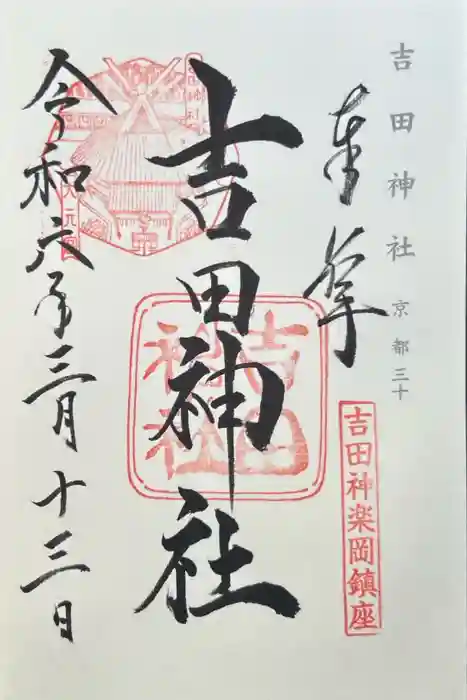 吉田神社 京都三十
奉拝
吉田神楽岡鎮座
吉田神社
吉田神社
大元宮
令和六年三月十三日